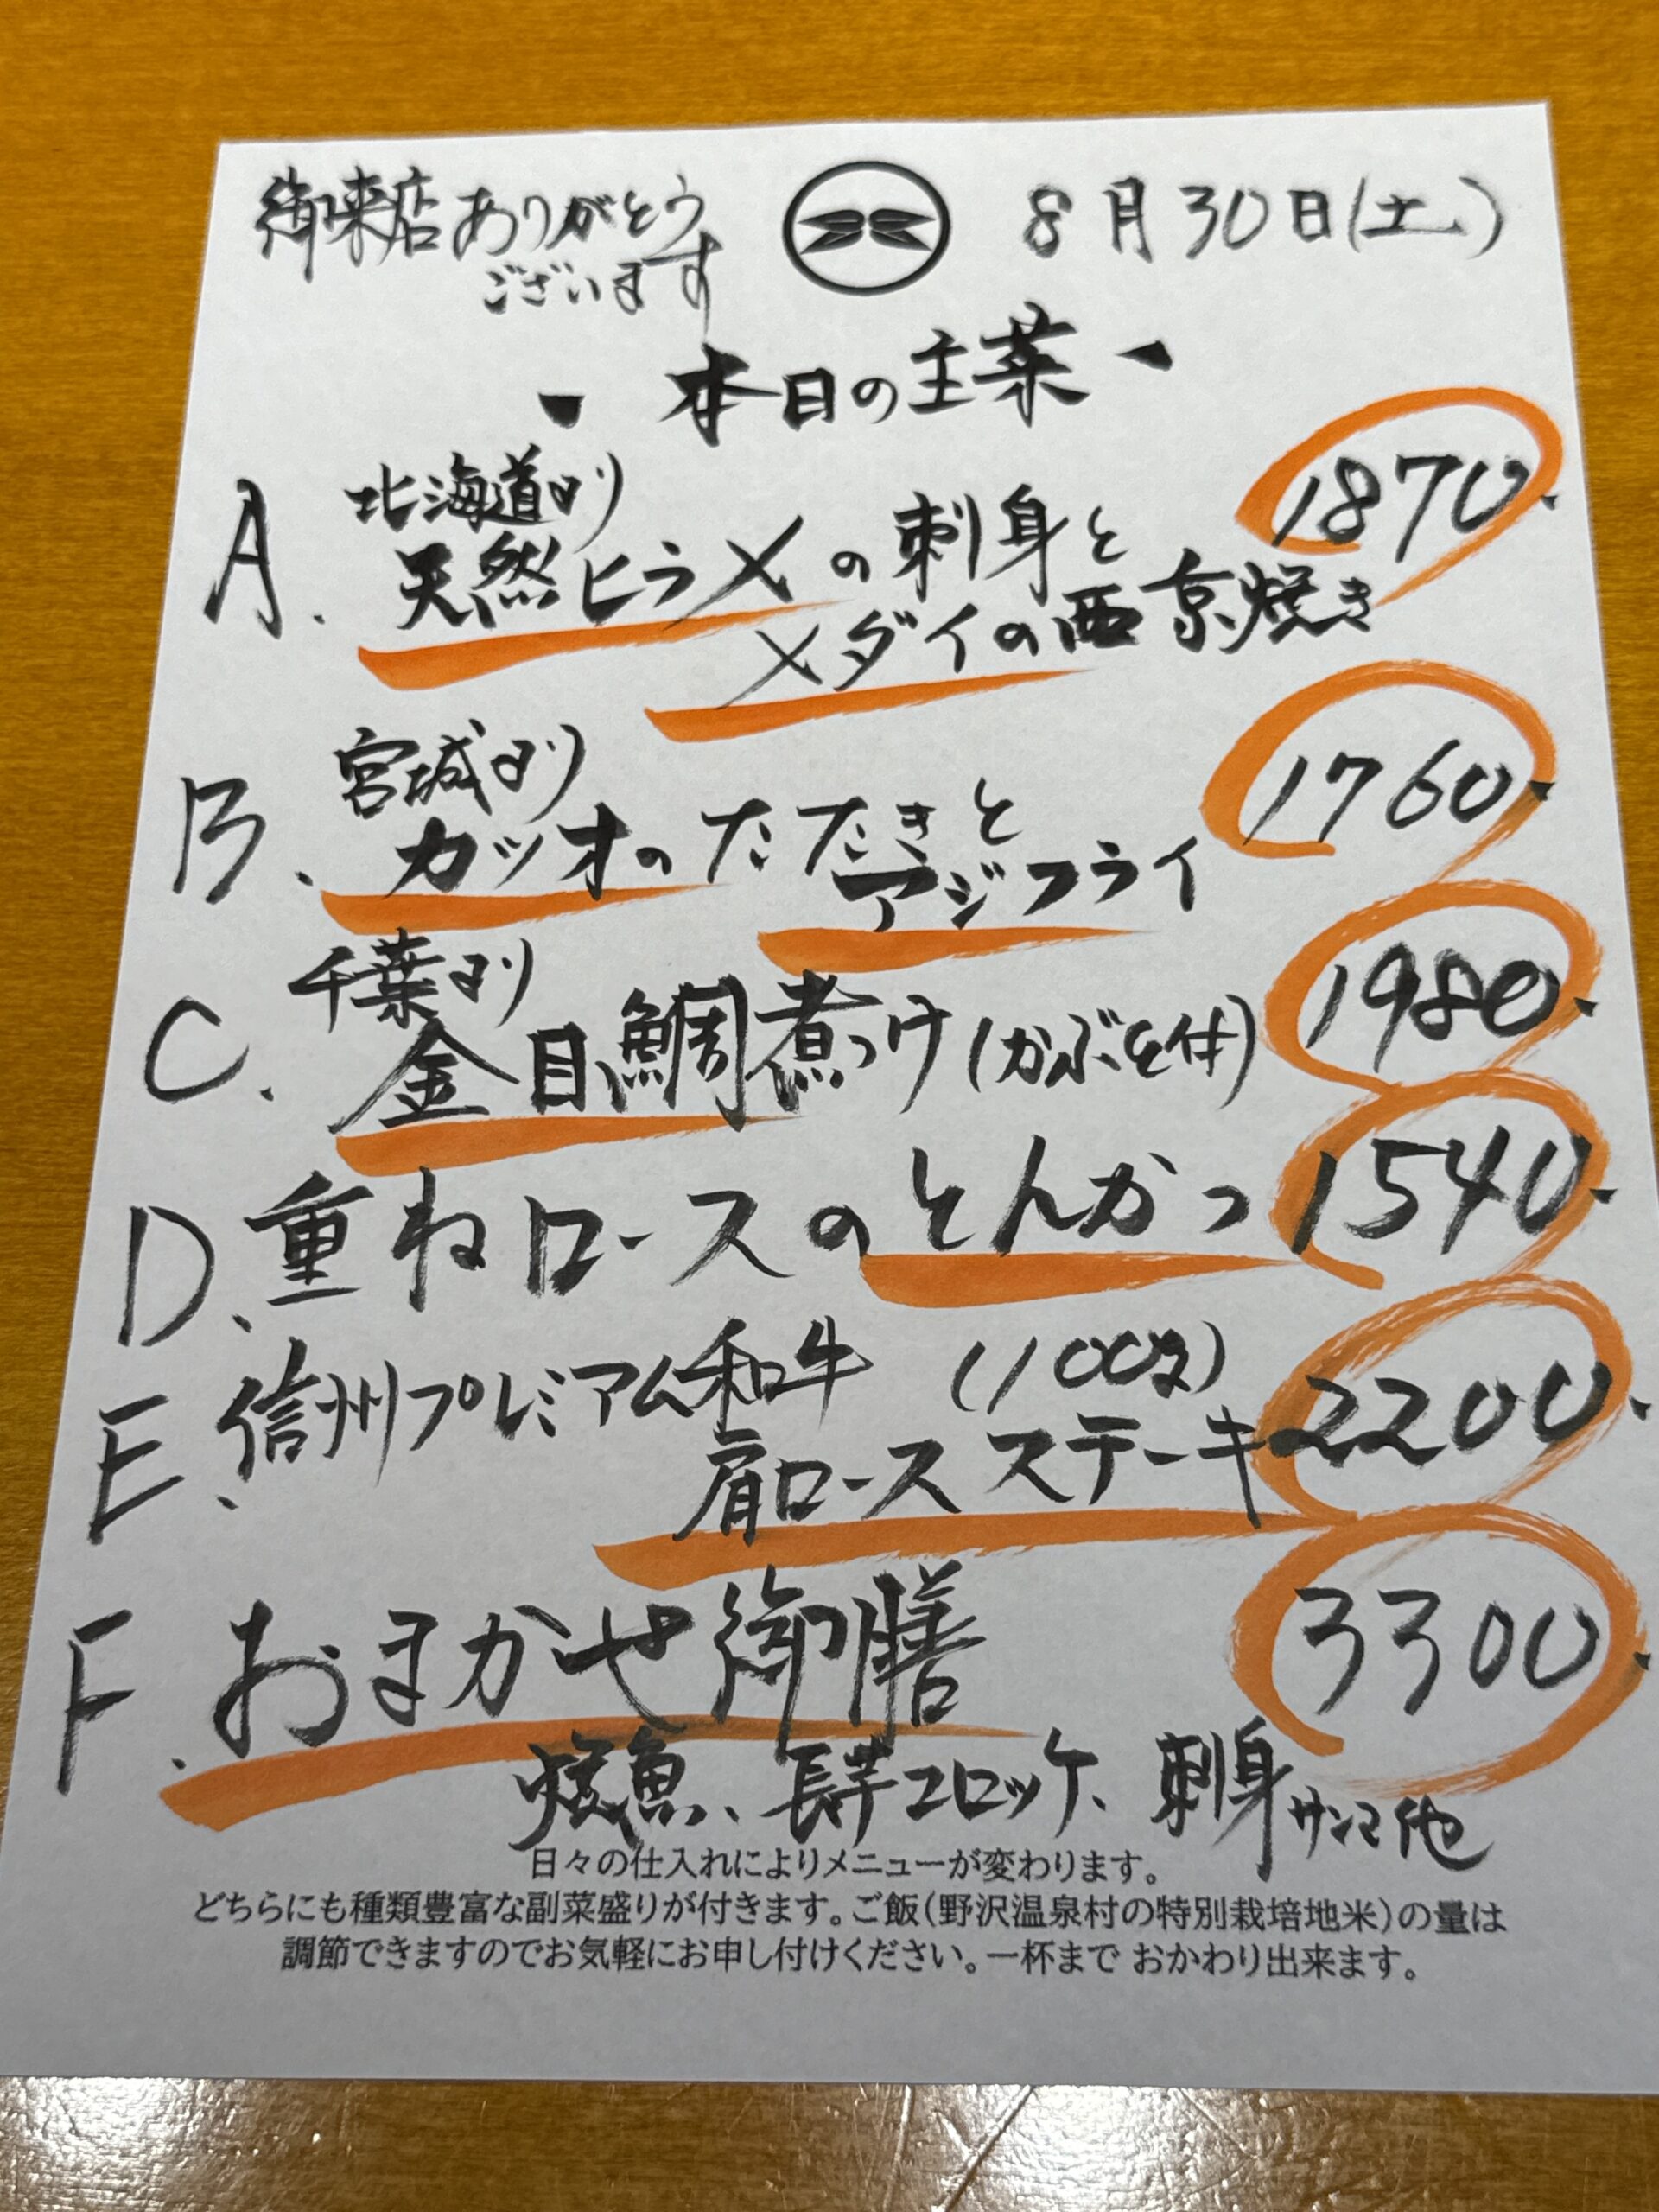 御来店ありがとう
ございます
8月30日(土)
本日の主菜
A. 北海道より
天然ヒラメの刺身と
メダイの西京焼き
1870.
B. 宮城より
カツオのたたきと
アジフライ
1760.
C. 千葉より
金目鯛煮つけ(かぶと付)
1980.
D. 重ねロースのとんかつ 1540.
E. 信州プレミアム和牛 (100g)
肩ロースステーキ 2200.
F. おまかせ御膳 3300.
焼魚、長芋コロッケ、刺身サンマ他
日々の仕入れによりメニューが変わります。
どちらにも種類豊富な副菜盛りが付きます。ご飯(野沢温泉村の特別栽培地米)の量は
調節できますのでお気軽にお申し付けください。一杯まで おかわり出来ます。